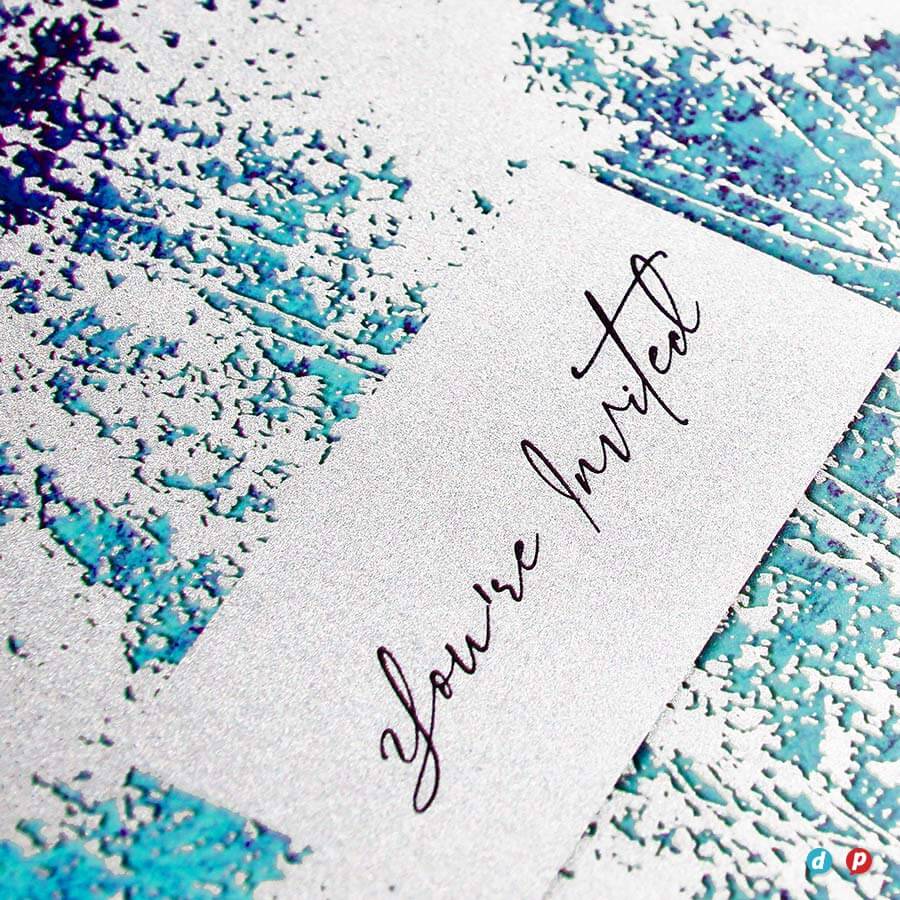 You're Invited
d p